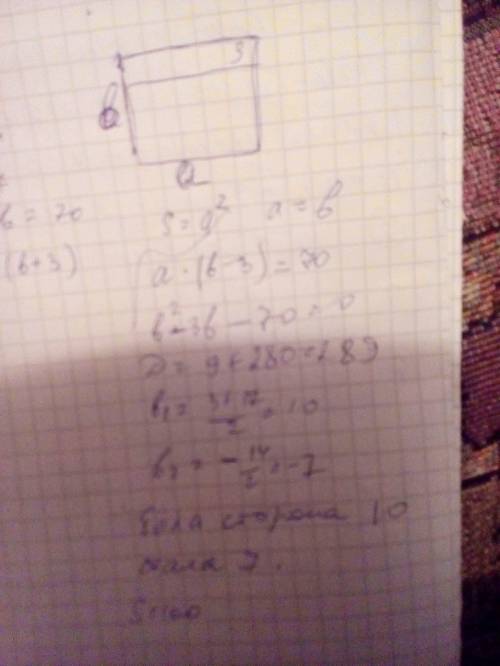 3
b
a
b = 70
S = a² a = b
(b+3)
a · (b - 3) = 70
b² - 3b - 70 = 0
D = 9 + 280 = 289
b₁ = (3+17)/2 = 10
b₂ = -14/2 = -7
Была сторона 10
стала 7.
S=100